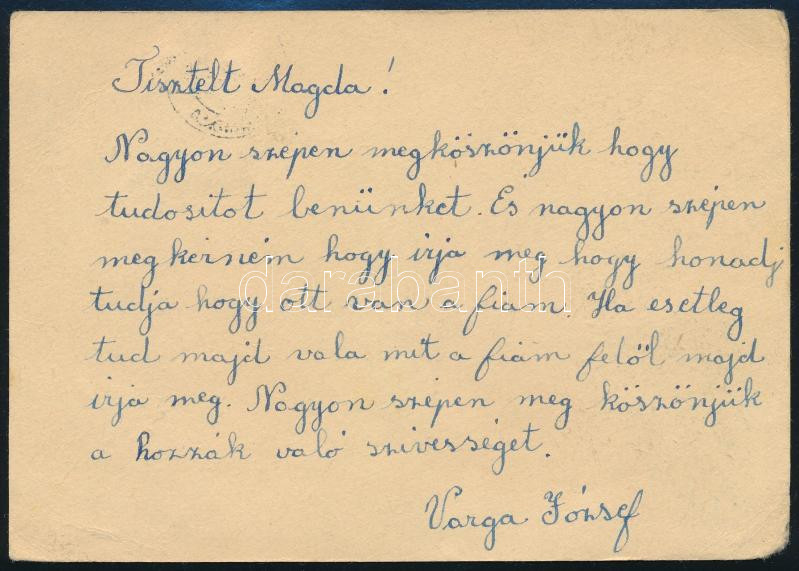 Tisztelt Magda!
Nagyon szépen megköszönjük hogy
tudositot benünket. És nagyon szépen
megkérném hogy irja meg hogy honadj
tudja hogy ott van a fiam. Ha esetleg
tud majd vala mit a fiam felöl majd
irja meg. Nagyon szépen meg köszönjük
a hozzák való szivességet.
Varga József
darabanth